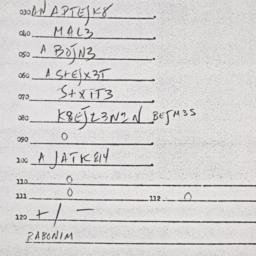 030 AN APTEJK8
040 MAL3
050 A BOJN3
060 A S+EJX3T
070 S+XIT3
080 K8EJZ3N2N BEJM35
090 0
100 A JATK814
110 0
111 0 112 0
120 +/-
BABONIM